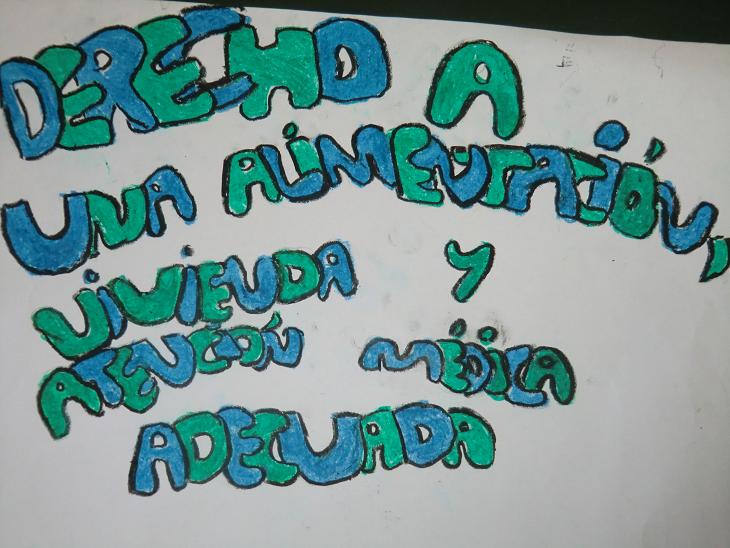 DERECHO A
UNA ALIMENTACIÓN,
VIVIENDA Y
ATENCIÓN MÉDICA
ADECUADA